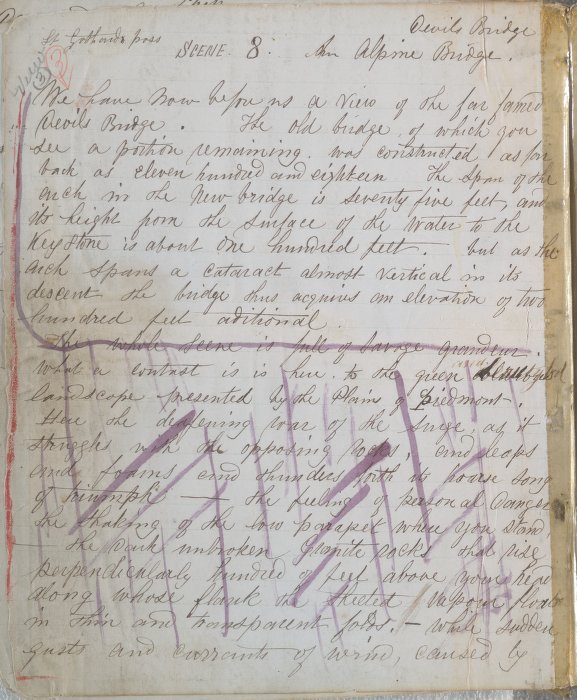 Devils Bridge
St Gothards pass
SCENE. 8. An Alpine Bridge.
View
We have now before us a view of the far famed
Devils Bridge. The old bridge, of which you
see a portion remaining, was constructed as far
back as eleven hundred and eighteen The span of the
arch in the New bridge is seventy five feet, and
its height from the surface of the water to the
Key Stone is about one hundred feet. but as the
arch spans a cataract almost vertical in its
descent the bridge thus acquires an elevation of two
hundred feet aditional.
The whole scene is full of savage grandeur.
what a contrast is is here to the quiet
landscape presented by the Plains of Piedmont.
Here the deafening roar of the surge, as it
struggles with the opposing rocks, and leaps
and foams and thunders forth its hoarse song
of triumph — the feeling of personal danger
the shaking of the low parapet where you stand
— the dark unbroken granite rocks that rise
perpendicularly hundred of feet above your head
along whose flank the sheeted vapour floats
in thin and transparent folds. — while sudden
gusts and currants of wind, caused by